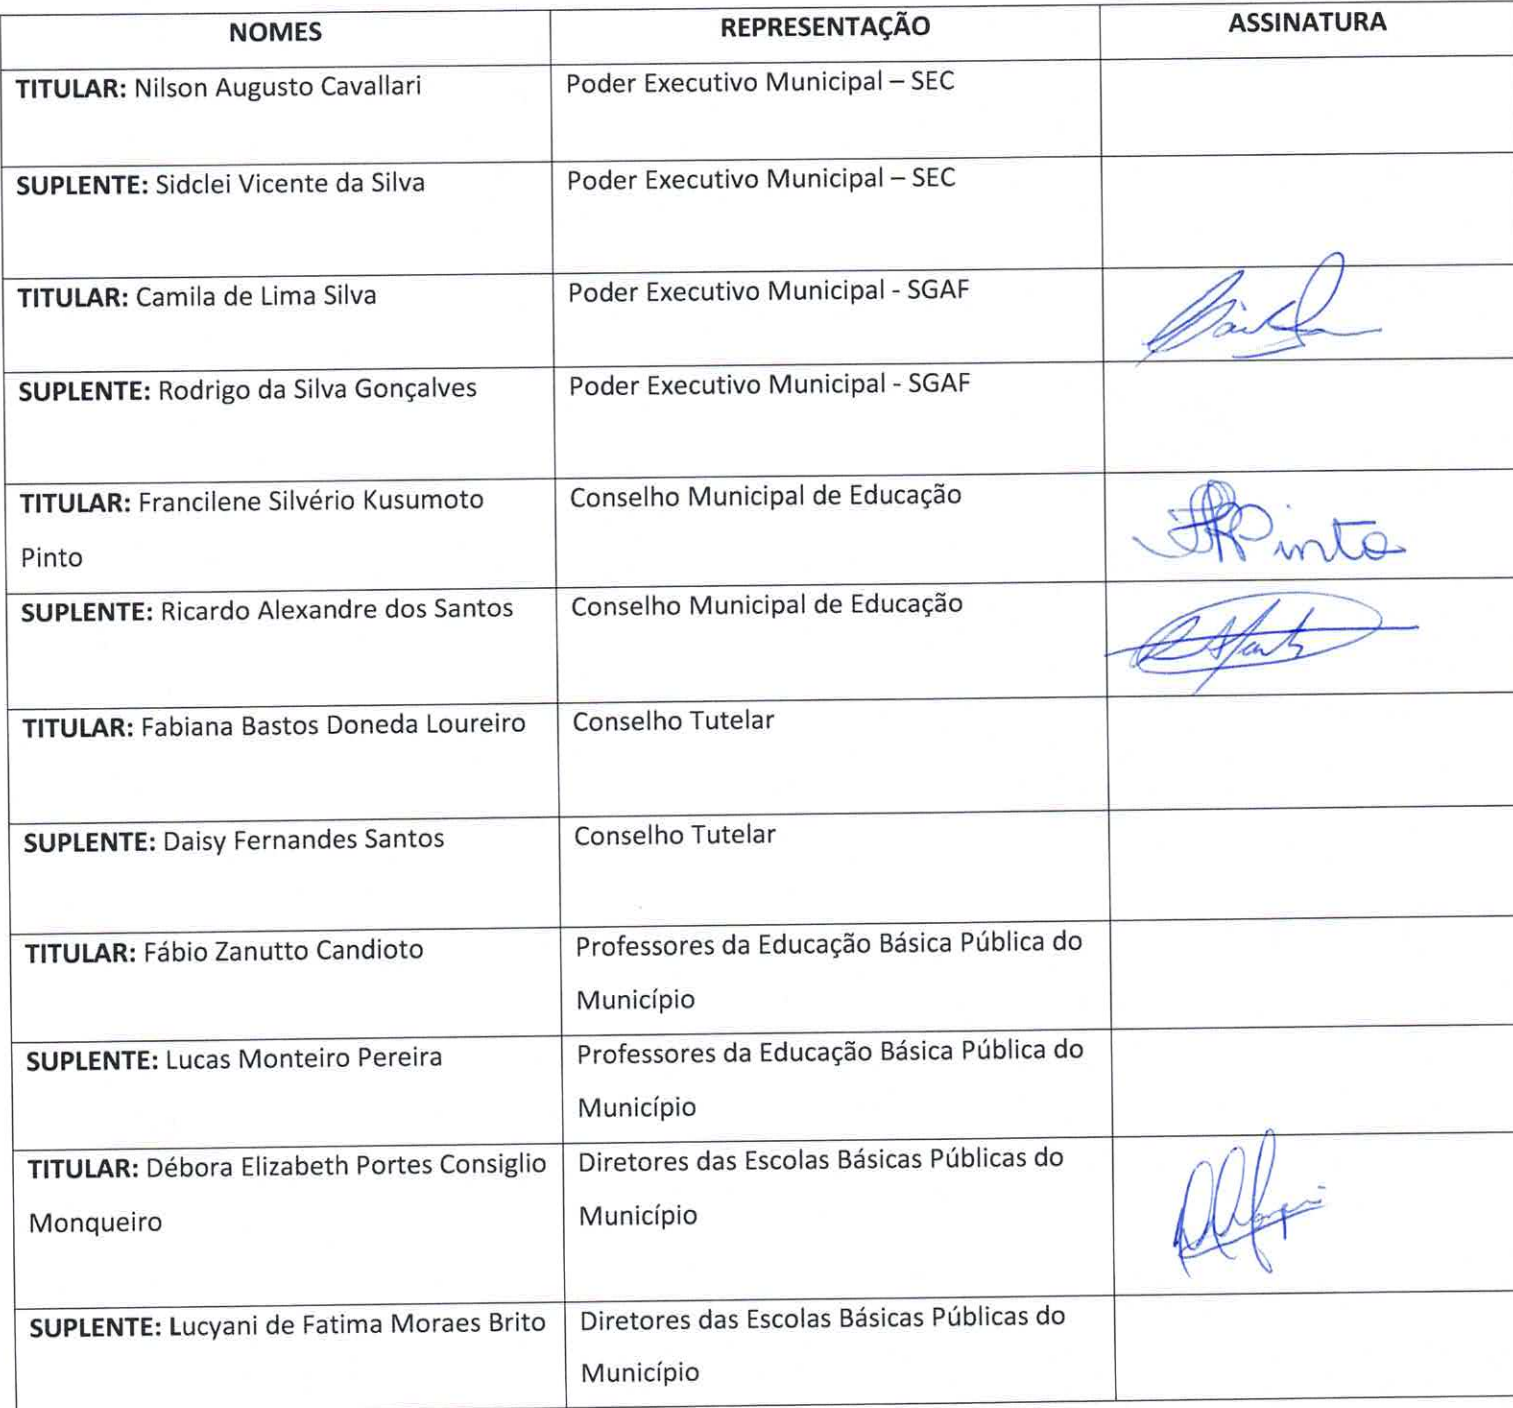 NOMES REPRESENTAÇÃO ASSINATURA
TITULAR: Nilson Augusto Cavallari Poder Executivo Municipal – SEC
SUPLENTE: Sidclei Vicente da Silva Poder Executivo Municipal – SEC
TITULAR: Camila de Lima Silva Poder Executivo Municipal - SGAF
SUPLENTE: Rodrigo da Silva Gonçalves Poder Executivo Municipal - SGAF
TITULAR: Francilene Silvério Kusumoto Conselho Municipal de Educação
Pinto Pinto
SUPLENTE: Ricardo Alexandre dos Santos Conselho Municipal de Educação
TITULAR: Fabiana Bastos Doneda Loureiro Conselho Tutelar
SUPLENTE: Daisy Fernandes Santos Conselho Tutelar
TITULAR: Fábio Zanutto Candioto Professores da Educação Básica Pública do
Município
SUPLENTE: Lucas Monteiro Pereira Professores da Educação Básica Pública do
Município
TITULAR: Débora Elizabeth Portes Consiglio Diretores das Escolas Básicas Públicas do
Monqueiro Município
SUPLENTE: Lucyani de Fatima Moraes Brito Diretores das Escolas Básicas Públicas do
Município